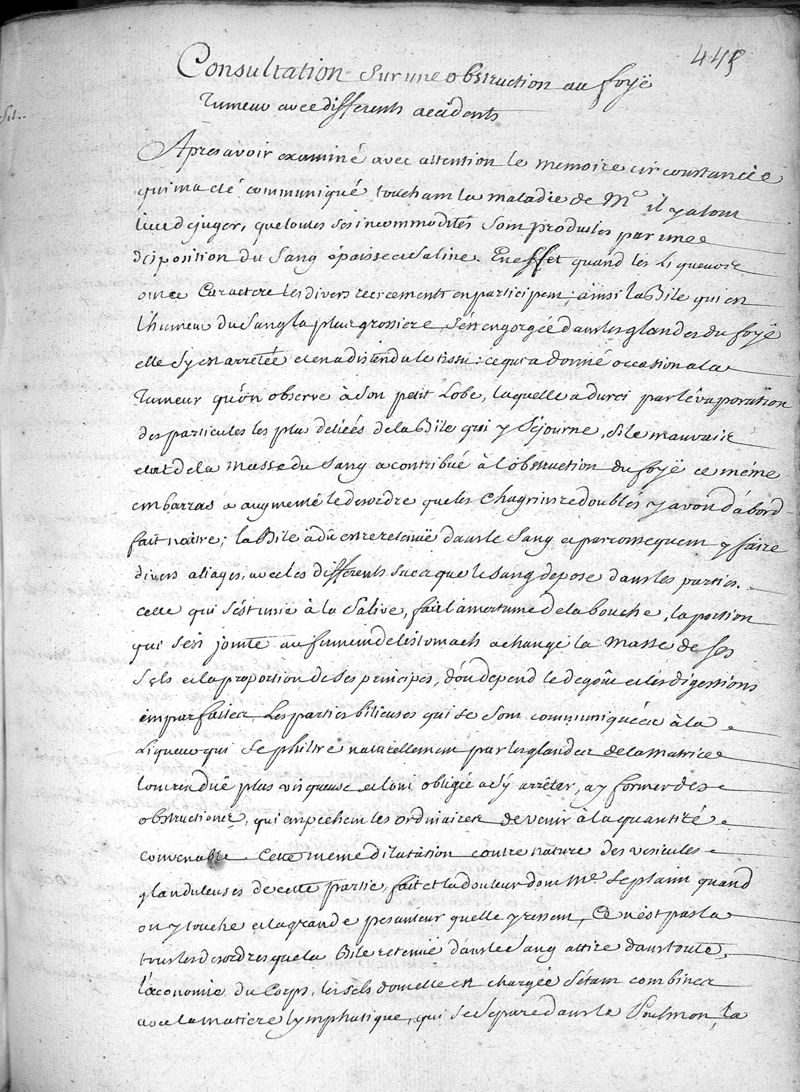 445
Consultation sur une obstruction au foyë
Tumeur avec differents accidents
Apres avoir examiné avec attention le memoire circonstancié
qui ma eté communiqué touchant la maladie de Me il y a tout
lieu de juger, que toutes ses incommodités sont produites par une
disposition du sang épaisse et saline. En effet quand les liqueurs
ont ce caractere les divers recrements en participent; ainsi la Bile qui est
l'humeur du sang la plus grossiere, s'est engorgée dans les glandes du foyë
elle s'y est arretée et en a distendu le tissu: ce qui a donné occasion a la
Tumeur qu'on observe à son petit Lobe, laquelle a durci par lévaporation
des particules les plus deliées de la Bile qui y séjourne, si le mauvais
etat de la masse du sang a contribué à l'obstruction du foyë ce méme
embarras a augmenté le desordre que les chagrins redoublés y avoient d'abord
fait naitre; la Bile a dû etre retenüe dans le sang et par consequent y faire
divers aliages, avec les differents sucs que le sang depose dans les parties.
celle qui s'est unie à la salive, fait l'amertume de la bouche, la portion
qui s'est jointe au ferment de lestomach a changé la masse de ses
sels et la proportion de ses principes, d'où depend le degout et les digestions
imparfaites, les parties bilieuses qui se sont communiquées à la
liqueur qui se philtre naturellement par les glandes de la matrice
l'ont rendüe plus visqueuse et l'ont obligée a s'y arrêter, a y former des
obstructions, qui empechent les ordinaires de venir à la quantité
convenable. Cette meme dilatation contre nature des vesicules
glanduleuses de cette partie, fait et la douleur dont Me. se plaint quand
on y touche et la grande pesanteur quelle y ressent, Ce n'est pas la
tous les desordres que la Bile retenüe dans le sang attire dans toute
l'œconomie du Corps, les sels dont elle est chargée s'étant combinés
avec la matiere lymphatique, qui se separe dans le Poulmon, la